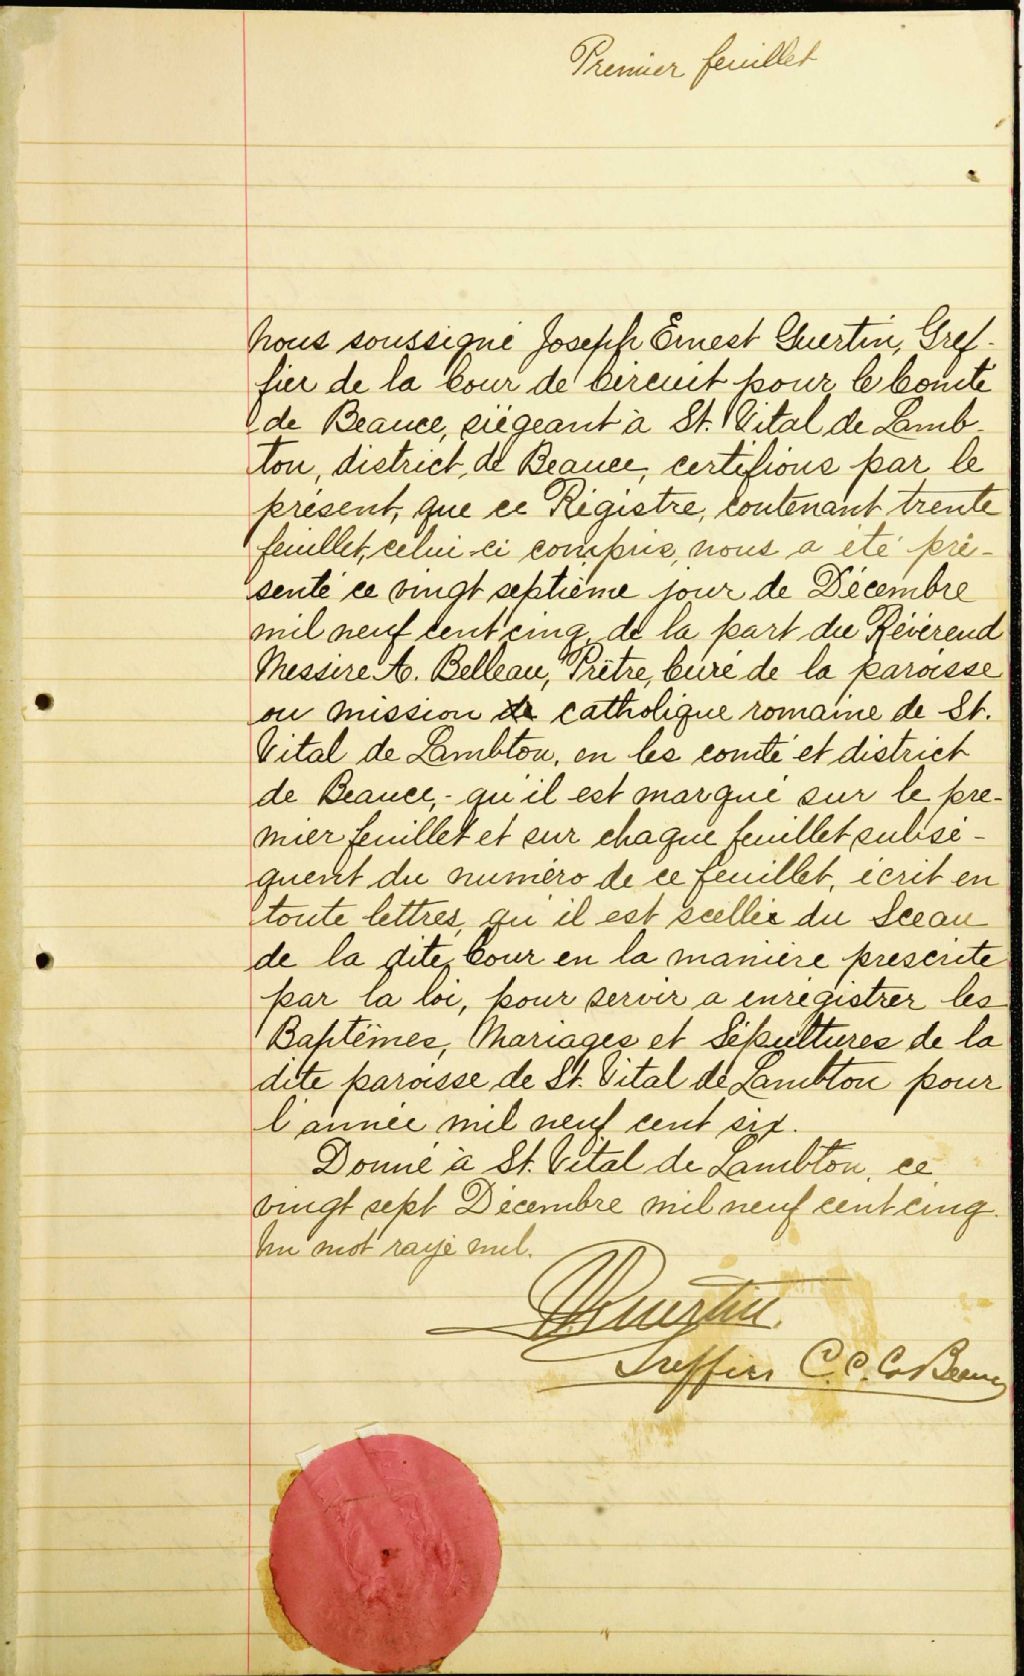 Premier feuillet
Nous soussigné Joseph Ernest Guertin, Gref-
fier de la Cour de Circuit pour le Comté
de Beauce, siégeant à St. Vital de Lamb-
ton, district de Beauce, certifions par le
présent, que ce Régistre, contenant trente
feuillet, celui-ci compris, nous a été pré-
senté ce vingt septième jour de Décembre
mil neuf cent cinq, de la part du Révérend
Messire A. Belleau, Prêtre, Curé de la paroisse
ou mission de catholique romaine de St.
Vital de Lambton, en les comté et district
de Beauce,- qu'il est marqué sur le pre-
mier feuillet et sur chaque feuillet subsé-
quent du numéro de ce feuillet, écrit en
toute lettres, qu'il est scellé du Sceau
de la dite Cour en la manière prescrite
par la loi, pour servir a enrégistrer les
Baptêmes, Mariages et Sépultures de la
dite paroisse de St. Vital de Lambton pour
l'année mil neuf cent six.
Donné à St. Vital de Lambton, ce
vingt sept Décembre mil neuf cent cinq.
Un mot rayé nul.
Guertin
Greffier C. C. Co Beauce